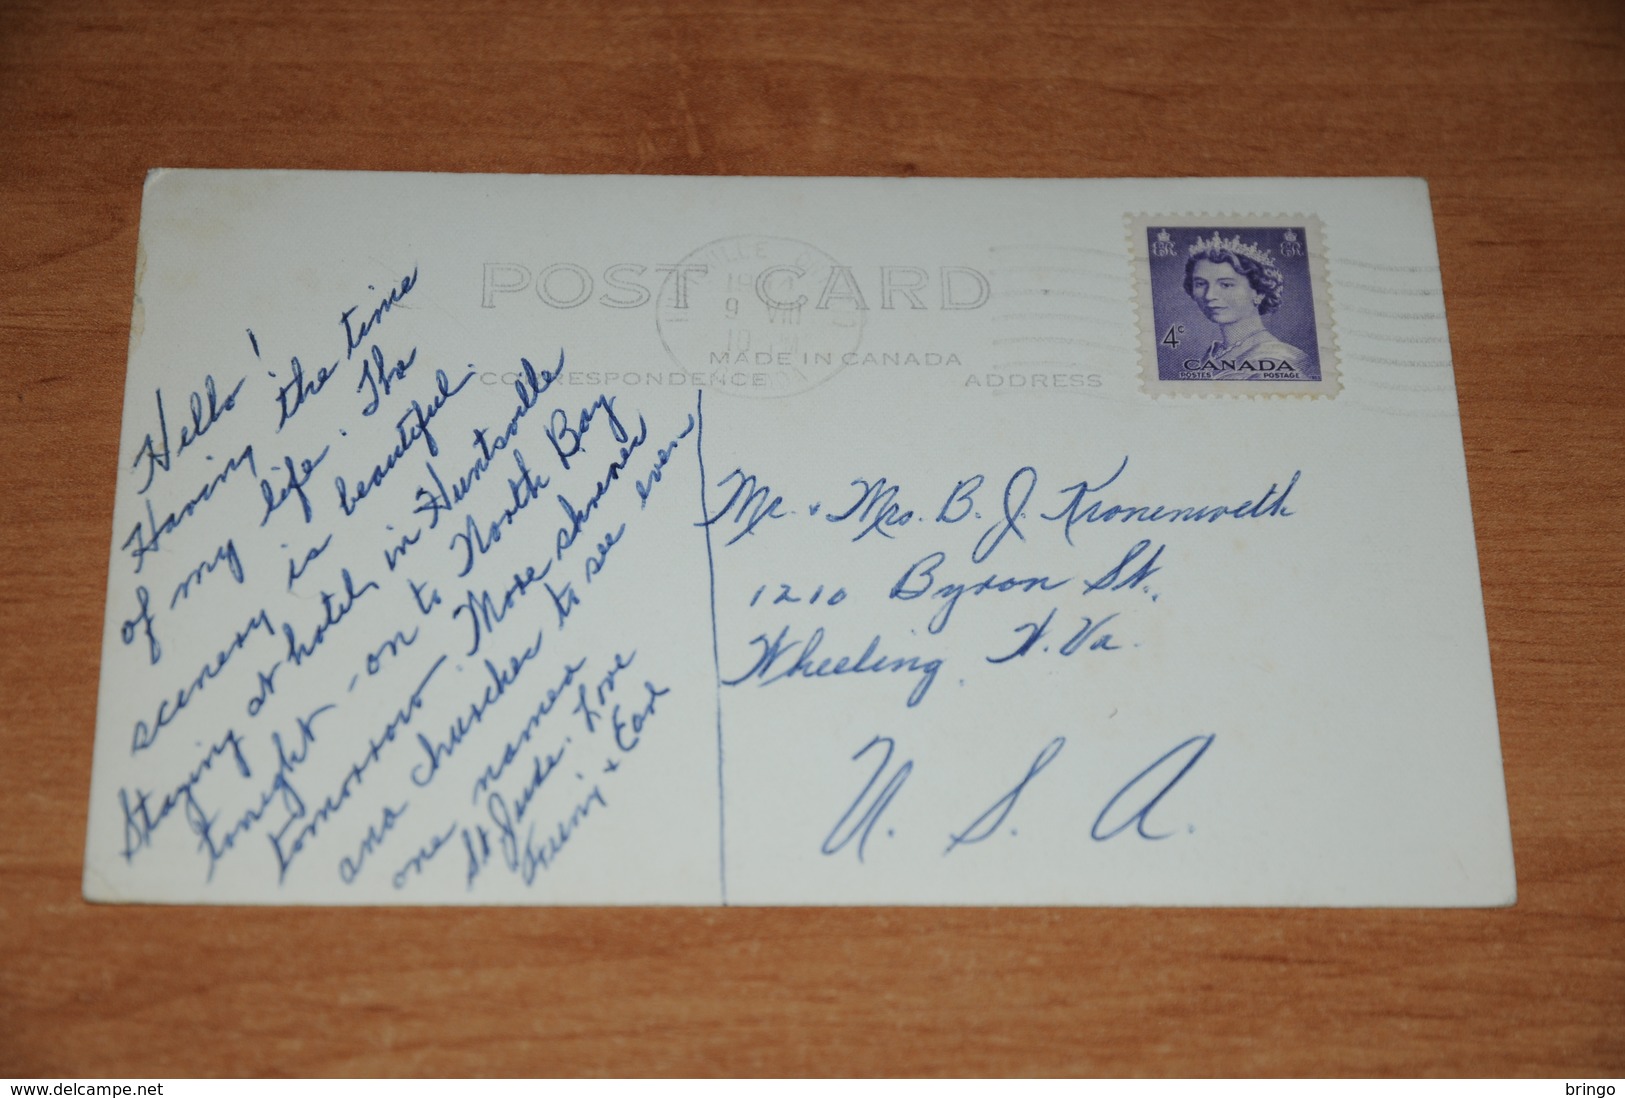 POST CARD
MADE IN CANADA
CORRESPONDENCE
ADDRESS
9 VIII
4¢
CANADA
POSTES POSTAGE
Hello!
Having the time
of my life. The
scenery is beautiful.
Staying at hotel, in Huntsville
tonight - on to North Bay
tomorrow. More shrines
and churches to see even
one named
St. Jude. Love
+ Earl
Mr. + Mrs. B. J. Kronenweth
1210 Byron St.,
Wheeling, W. Va.
U. S. A.
delcampe.net
bringo